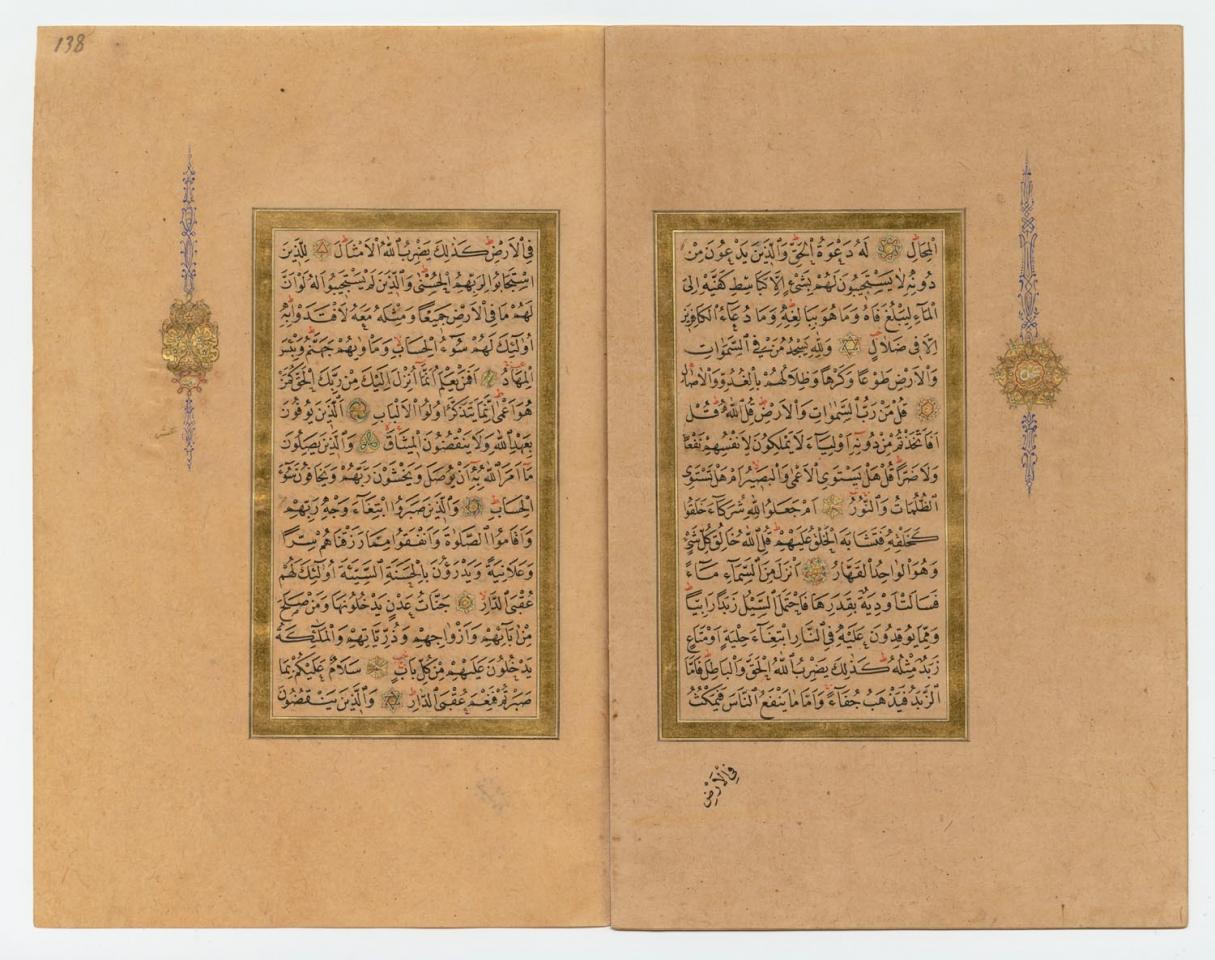 الْمِحَالِ لَهُ دَعْوَةُ الْحَقِّ وَالَّذِينَ يَدْعُونَ مِنْ
دُونِهِ لَا يَسْتَجِيبُونَ لَهُمْ بِشَيْءٍ إِلَّا كَبَاسِطِ كَفَّيْهِ إِلَى
الْمَاءِ لِيَبْلُغَ فَاهُ وَمَا هُوَ بِبَالِغِهِ وَمَا دُعَاءُ الْكَافِرِينَ
إِلَّا فِي ضَلَالٍ وَلِلَّهِ يَسْجُدُ مَنْ فِي السَّمٰوَاتِ
وَالْأَرْضِ طَوْعًا وَكَرْهًا وَظِلَالُهُمْ بِالْغُدُوِّ وَالْآصَالِ
قُلْ مَنْ رَبُّ السَّمٰوَاتِ وَالْأَرْضِ قُلِ اللَّهُ قُلْ
أَفَاتَّخَذْتُمْ مِنْ دُونِهِ أَوْلِيَاءَ لَا يَمْلِكُونَ لِأَنْفُسِهِمْ نَفْعًا
وَلَا ضَرًّا قُلْ هَلْ يَسْتَوِي الْأَعْمَى وَالْبَصِيرُ أَمْ هَلْ تَسْتَوِي
الظُّلُمَاتُ وَالنُّورُ أَمْ جَعَلُوا لِلَّهِ شُرَكَاءَ خَلَقُوا
كَخَلْقِهِ فَتَشَابَهَ الْخَلْقُ عَلَيْهِمْ قُلِ اللَّهُ خَالِقُ كُلِّ شَيْءٍ
وَهُوَ الْوَاحِدُ الْقَهَّارُ أَنْزَلَ مِنَ السَّمَاءِ مَاءً
فَسَالَتْ أَوْدِيَةٌ بِقَدَرِهَا فَاحْتَمَلَ السَّيْلُ زَبَدًا رَابِيًا
وَمِمَّا يُوقِدُونَ عَلَيْهِ فِي النَّارِ ابْتِغَاءَ حِلْيَةٍ أَوْ مَتَاعٍ
زَبَدٌ مِثْلُهُ كَذٰلِكَ يَضْرِبُ اللَّهُ الْحَقَّ وَالْبَاطِلَ فَأَمَّا
الزَّبَدُ فَيَذْهَبُ جُفَاءً وَأَمَّا مَا يَنْفَعُ النَّاسَ فَيَمْكُثُ
فِي الْأَرْضِ
138
فِي الْأَرْضِ كَذٰلِكَ يَضْرِبُ اللَّهُ الْأَمْثَالَ لِلَّذِينَ
اسْتَجَابُوا لِرَبِّهِمُ الْحُسْنَى وَالَّذِينَ لَمْ يَسْتَجِيبُوا لَهُ لَوْ أَنَّ
لَهُمْ مَا فِي الْأَرْضِ جَمِيعًا وَمِثْلَهُ مَعَهُ لَافْتَدَوْا بِهِ
أُولٰئِكَ لَهُمْ سُوءُ الْحِسَابِ وَمَأْوٰيهُمْ جَهَنَّمُ وَبِئْسَ
الْمِهَادُ أَفَمَنْ يَعْلَمُ أَنَّمَا أُنْزِلَ إِلَيْكَ مِنْ رَبِّكَ الْحَقُّ كَمَنْ
هُوَ أَعْمَى إِنَّمَا يَتَذَكَّرُ أُولُوا الْأَلْبَابِ الَّذِينَ يُوفُونَ
بِعَهْدِ اللَّهِ وَلَا يَنْقُضُونَ الْمِيثَاقَ وَالَّذِينَ يَصِلُونَ
مَا أَمَرَ اللَّهُ بِهِ أَنْ يُوصَلَ وَيَخْشَوْنَ رَبَّهُمْ وَيَخَافُونَ سُوءَ
الْحِسَابِ وَالَّذِينَ صَبَرُوا ابْتِغَاءَ وَجْهِ رَبِّهِمْ
وَأَقَامُوا الصَّلٰوةَ وَأَنْفَقُوا مِمَّا رَزَقْنَاهُمْ سِرًّا
وَعَلَانِيَةً وَيَدْرَؤُنَ بِالْحَسَنَةِ السَّيِّئَةَ أُولٰئِكَ لَهُمْ
عُقْبَى الدَّارِ جَنَّاتُ عَدْنٍ يَدْخُلُونَهَا وَمَنْ صَلَحَ
مِنْ آبَائِهِمْ وَأَزْوَاجِهِمْ وَذُرِّيَّاتِهِمْ وَالْمَلٰئِكَةُ
يَدْخُلُونَ عَلَيْهِمْ مِنْ كُلِّ بَابٍ سَلَامٌ عَلَيْكُمْ بِمَا
صَبَرْتُمْ فَنِعْمَ عُقْبَى الدَّارِ وَالَّذِينَ يَنْقُضُونَ